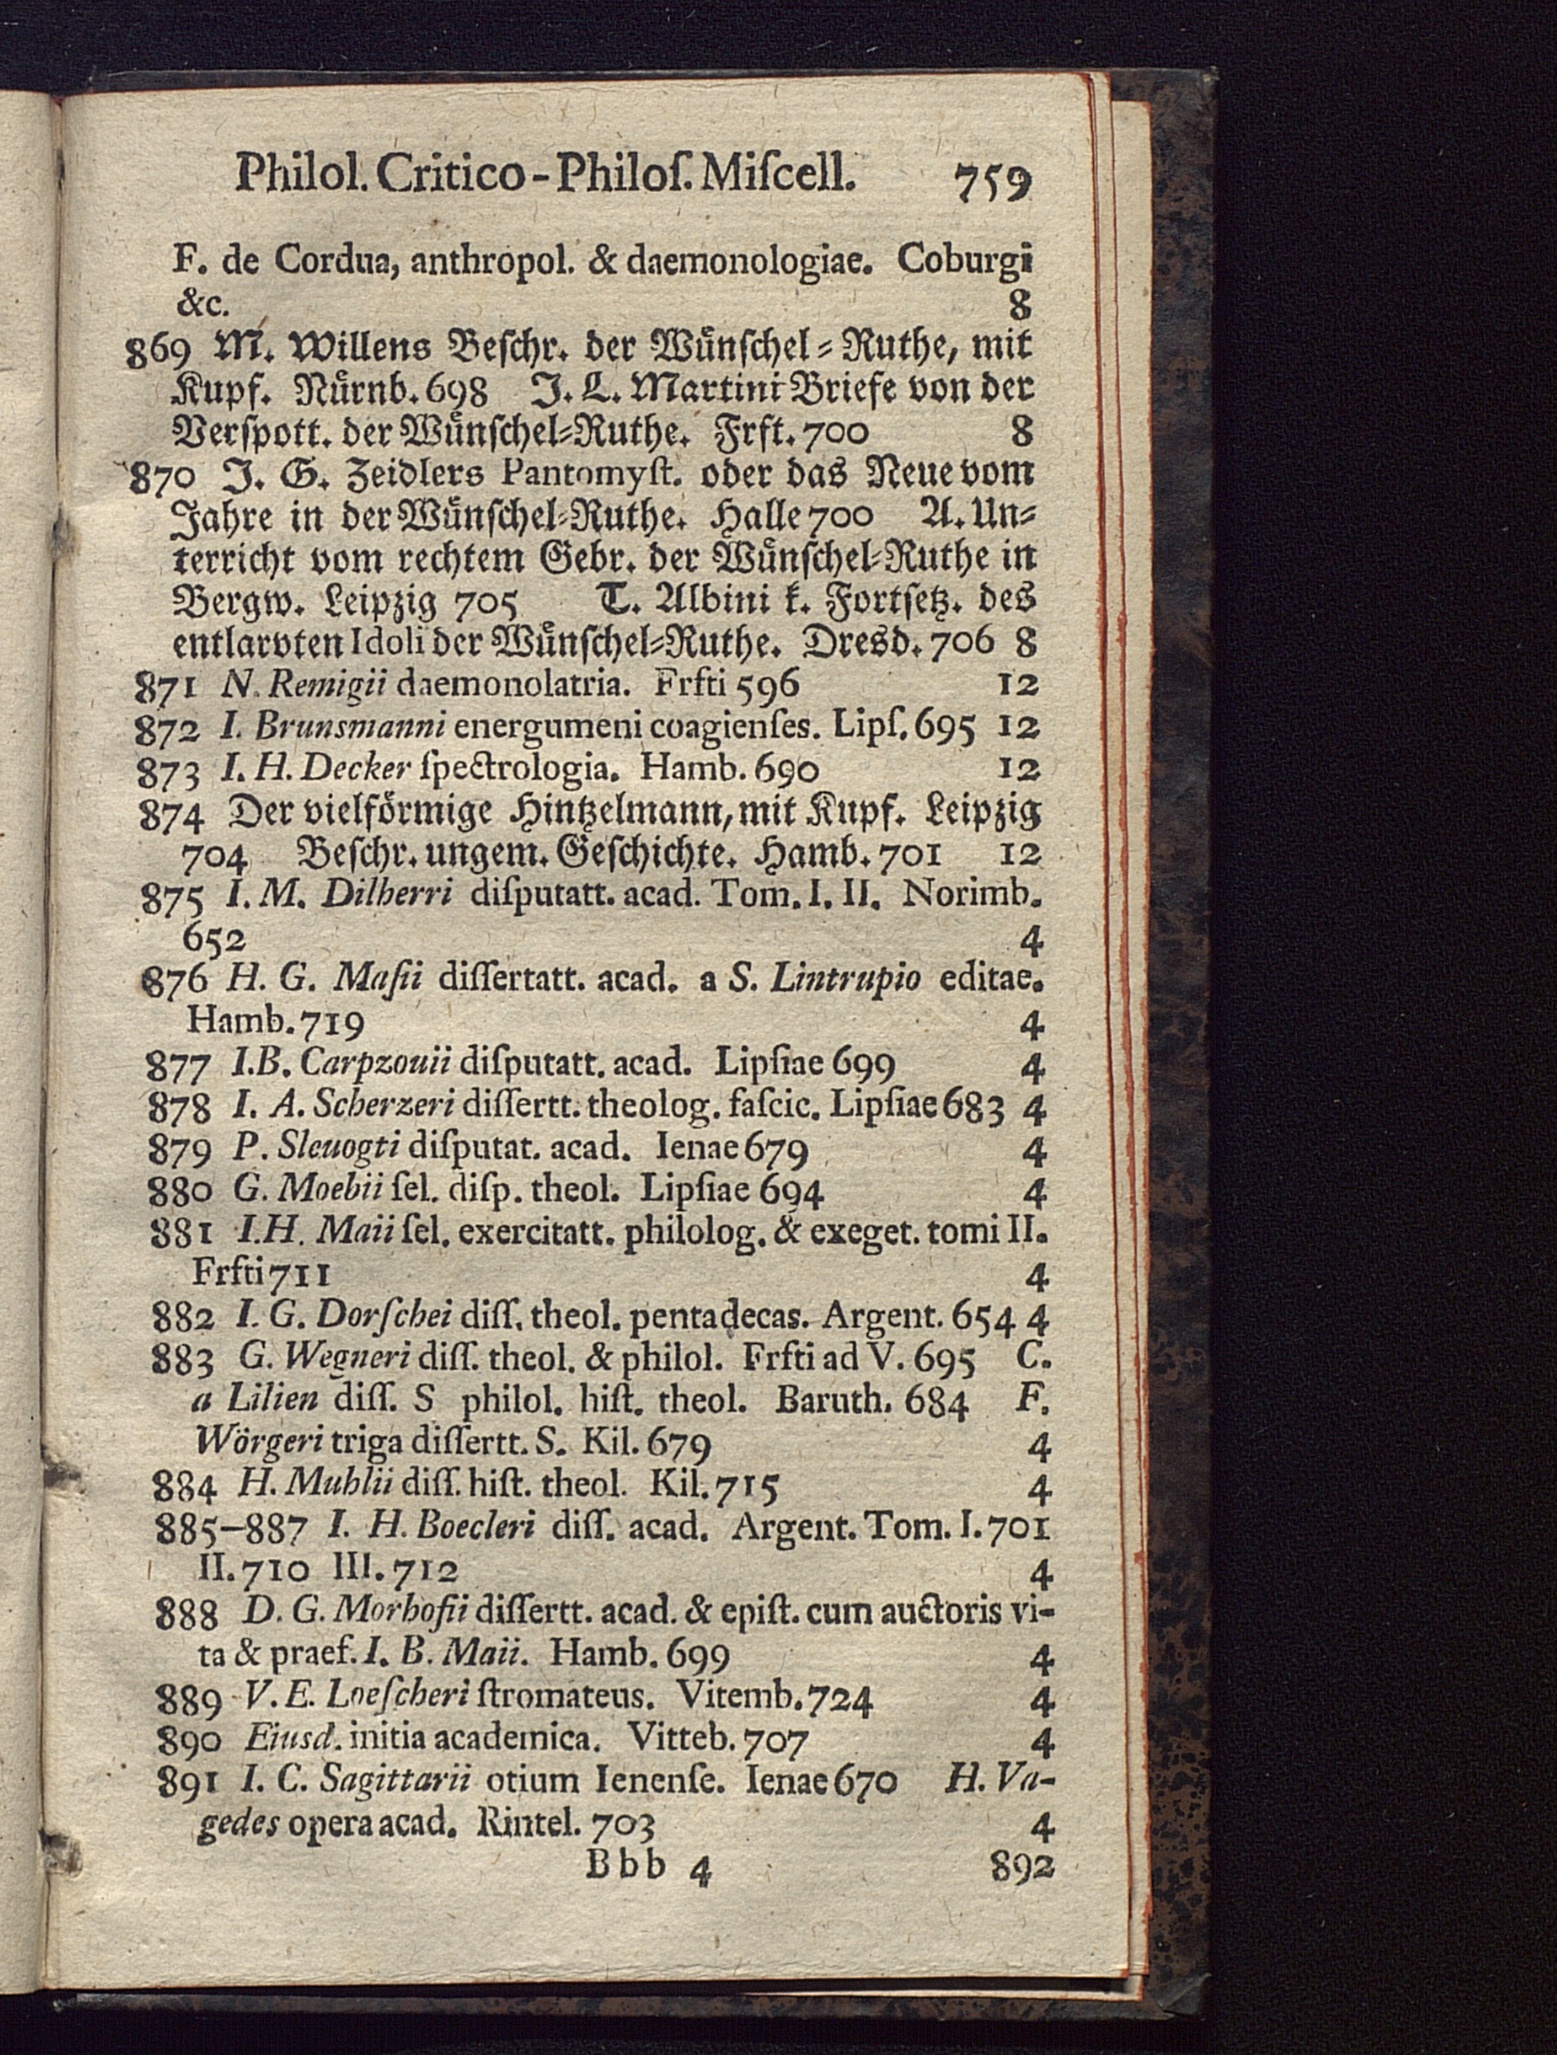 Philol. Critico-Philoſ. Miſcell. 759
F. de Cordua, anthropol. & daemonologiae. Coburgi
&c. 8
869 M. Willens Beſchr. der Wuͤnſchel-Ruthe, mit
Kupf. Nuͤrnb. 698 J. L. Martini Briefe von der
Verſpott. der Wuͤnſchel-Ruthe. Frft. 700 8
870 J. G. Zeidlers Pantomyſt. oder das Neue vom
Jahre in der Wuͤnſchel-Ruthe. Halle 700 A. Un-
terricht vom rechtem Gebr. der Wuͤnſchel-Ruthe in
Bergw. Leipzig 705 T. Albini k. Fortſetz. des
entlarvten Idoli der Wuͤnſchel-Ruthe. Dresd. 706 8
871 N. Remigii daemonolatria. Frfti 596 12
872 I. Brunsmanni energumeni coagienſes. Lipſ. 695 12
873 I. H. Decker ſpectrologia. Hamb. 690 12
874 Der vielfoͤrmige Hintzelmann, mit Kupf. Leipzig
704 Beſchr. ungem. Geſchichte. Hamb. 701 12
875 I. M. Dilherri diſputatt. acad. Tom. I. II. Norimb.
652 4
876 H. G. Maſii diſſertatt. acad. a S. Lintrupio editae.
Hamb. 719 4
877 I. B. Carpzouii diſputatt. acad. Lipſiae 699 4
878 I. A. Scherzeri diſſertt. theolog. faſcic. Lipſiae 683 4
879 P. Sleuogti diſputat. acad. Ienae 679 4
880 G. Moebii ſel. diſp. theol. Lipſiae 694 4
881 I. H. Maii ſel. exercitatt. philolog. & exeget. tomi II.
Frfti 711 4
882 I. G. Dorſchei diſſ. theol. pentadecas. Argent. 654 4
883 G. Wegneri diſſ. theol. & philol. Frfti ad V. 695 C.
a Lilien diſſ. S philol. hiſt. theol. Baruth. 684 F.
Wörgeri triga diſſertt. S. Kil. 679 4
884 H. Muhlii diſſ. hiſt. theol. Kil. 715 4
885–887 I. H. Boecleri diſſ. acad. Argent. Tom. I. 701
II. 710 III. 712 4
888 D. G. Morhofii diſſertt. acad. & epiſt. cum auctoris vi-
ta & praef. I. B. Maii. Hamb. 699 4
889 V. E. Loeſcheri ſtromateus. Vitemb. 724 4
890 Eiusd. initia academica. Vitteb. 707 4
891 I. C. Sagittarii otium Ienenſe. Ienae 670 H. Va-
gedes opera acad. Rintel. 703 4
Bbb 4 892